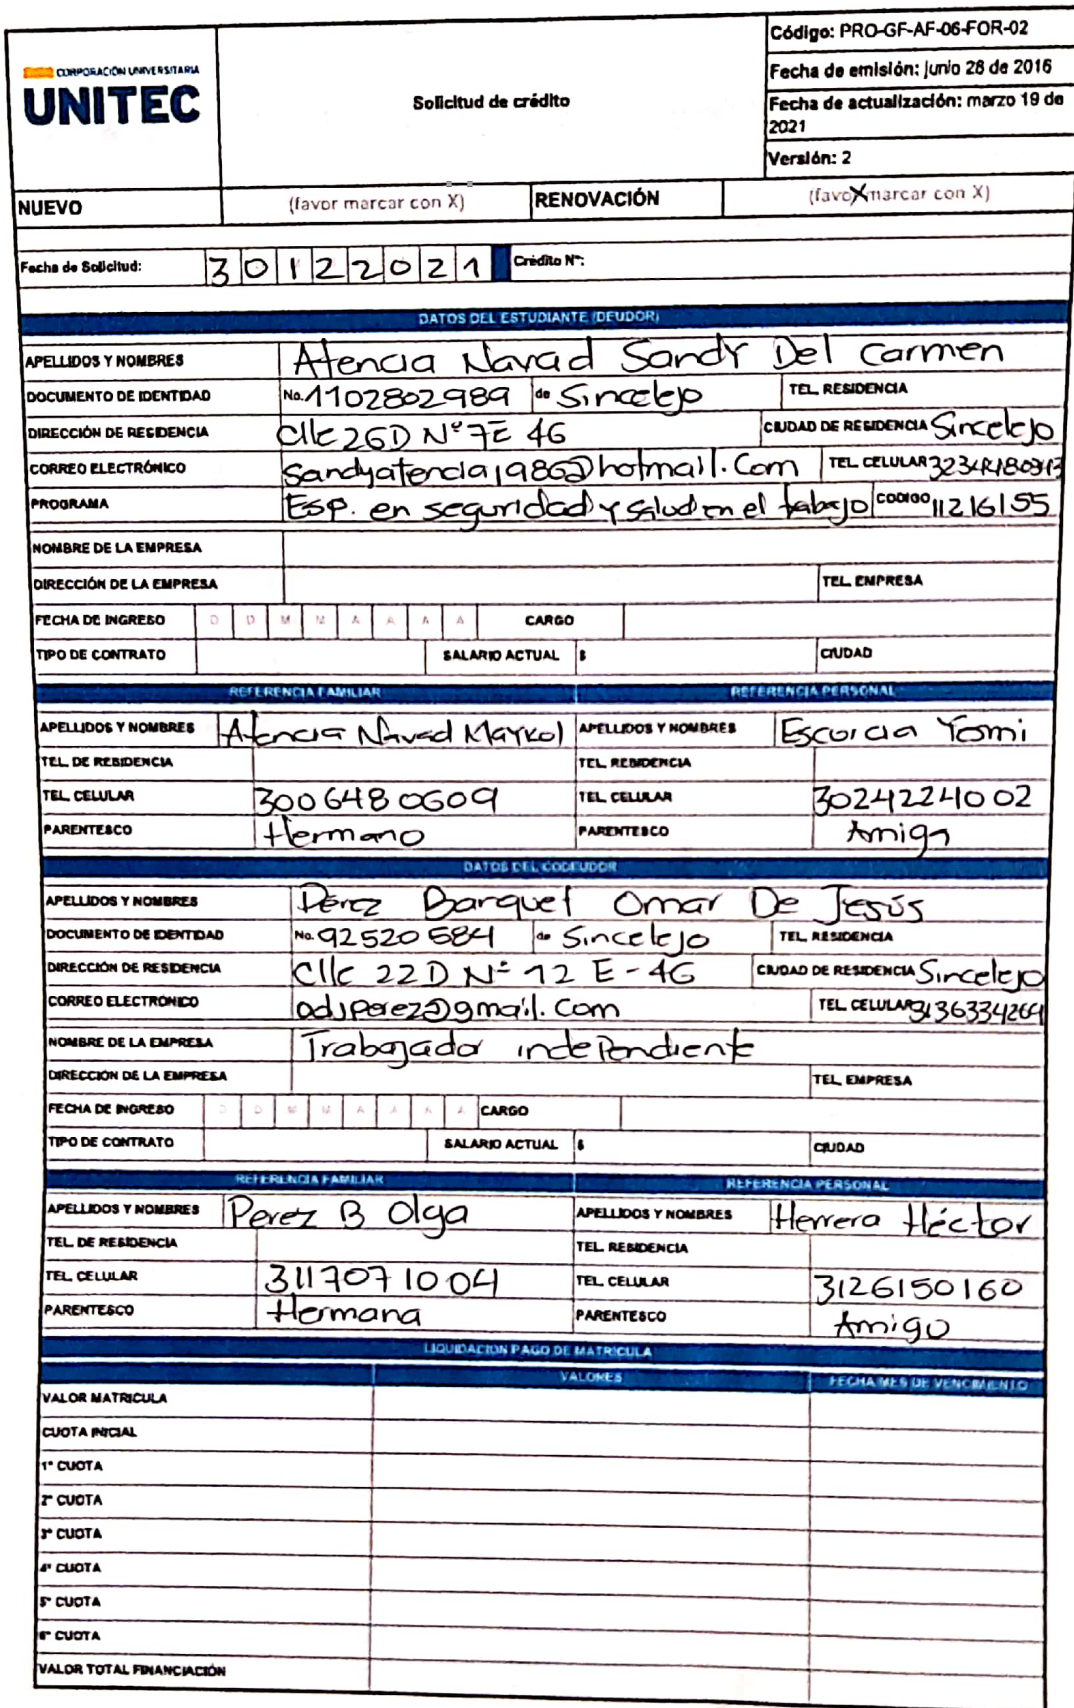 CORPORACIÓN UNIVERSITARIA
UNITEC
Solicitud de crédito
Código: PRO-GF-AF-06-FOR-02
Fecha de emisión: junio 28 de 2016
Fecha de actualización: marzo 19 de 2021
Versión: 2
NUEVO (favor marcar con X) RENOVACIÓN (favor marcar con X) X
Fecha de Solicitud: 3 0 1 2 2 0 2 1 Crédito N°:
DATOS DEL ESTUDIANTE (DEUDOR)
APELLIDOS Y NOMBRES Atencia Navad Sandy Del Carmen
DOCUMENTO DE IDENTIDAD No. 1102802989 de Sincelejo TEL. RESIDENCIA
DIRECCIÓN DE RESIDENCIA Clle 26D N° 7E 46 CIUDAD DE RESIDENCIA Sincelejo
CORREO ELECTRÓNICO Sandyatencia1986@hotmail.com TEL. CELULAR
PROGRAMA Esp. en seguridad y salud en el trabajo CODIGO 11216155
NOMBRE DE LA EMPRESA
DIRECCIÓN DE LA EMPRESA TEL. EMPRESA
FECHA DE INGRESO D D M M A A A A CARGO
TIPO DE CONTRATO SALARIO ACTUAL $ CIUDAD
REFERENCIA FAMILIAR REFERENCIA PERSONAL
APELLIDOS Y NOMBRES Atencia Navad Maykol APELLIDOS Y NOMBRES Escorcia Yomi
TEL. DE RESIDENCIA TEL. RESIDENCIA
TEL. CELULAR 3006480609 TEL. CELULAR 3024224002
PARENTESCO Hermano PARENTESCO Amiga
DATOS DEL CODEUDOR
APELLIDOS Y NOMBRES Pérez Barquet Omar De Jesús
DOCUMENTO DE IDENTIDAD No. 92520584 de Sincelejo TEL. RESIDENCIA
DIRECCIÓN DE RESIDENCIA Clle 22D N° 12 E-46 CIUDAD DE RESIDENCIA Sincelejo
CORREO ELECTRÓNICO odjperez@gmail.com TEL. CELULAR 3136334264
NOMBRE DE LA EMPRESA Trabajador independiente
DIRECCIÓN DE LA EMPRESA TEL. EMPRESA
FECHA DE INGRESO D D M M A A A A CARGO
TIPO DE CONTRATO SALARIO ACTUAL $ CIUDAD
REFERENCIA FAMILIAR REFERENCIA PERSONAL
APELLIDOS Y NOMBRES Perez B Olga APELLIDOS Y NOMBRES Herrera Héctor
TEL. DE RESIDENCIA TEL. RESIDENCIA
TEL. CELULAR 3117071004 TEL. CELULAR 3126150160
PARENTESCO Hermana PARENTESCO Amigo
LIQUIDACIÓN PAGO DE MATRICULA
VALORES FECHA MES DE VENCIMIENTO
VALOR MATRICULA
CUOTA INICIAL
1° CUOTA
2° CUOTA
3° CUOTA
4° CUOTA
5° CUOTA
6° CUOTA
VALOR TOTAL FINANCIACIÓN